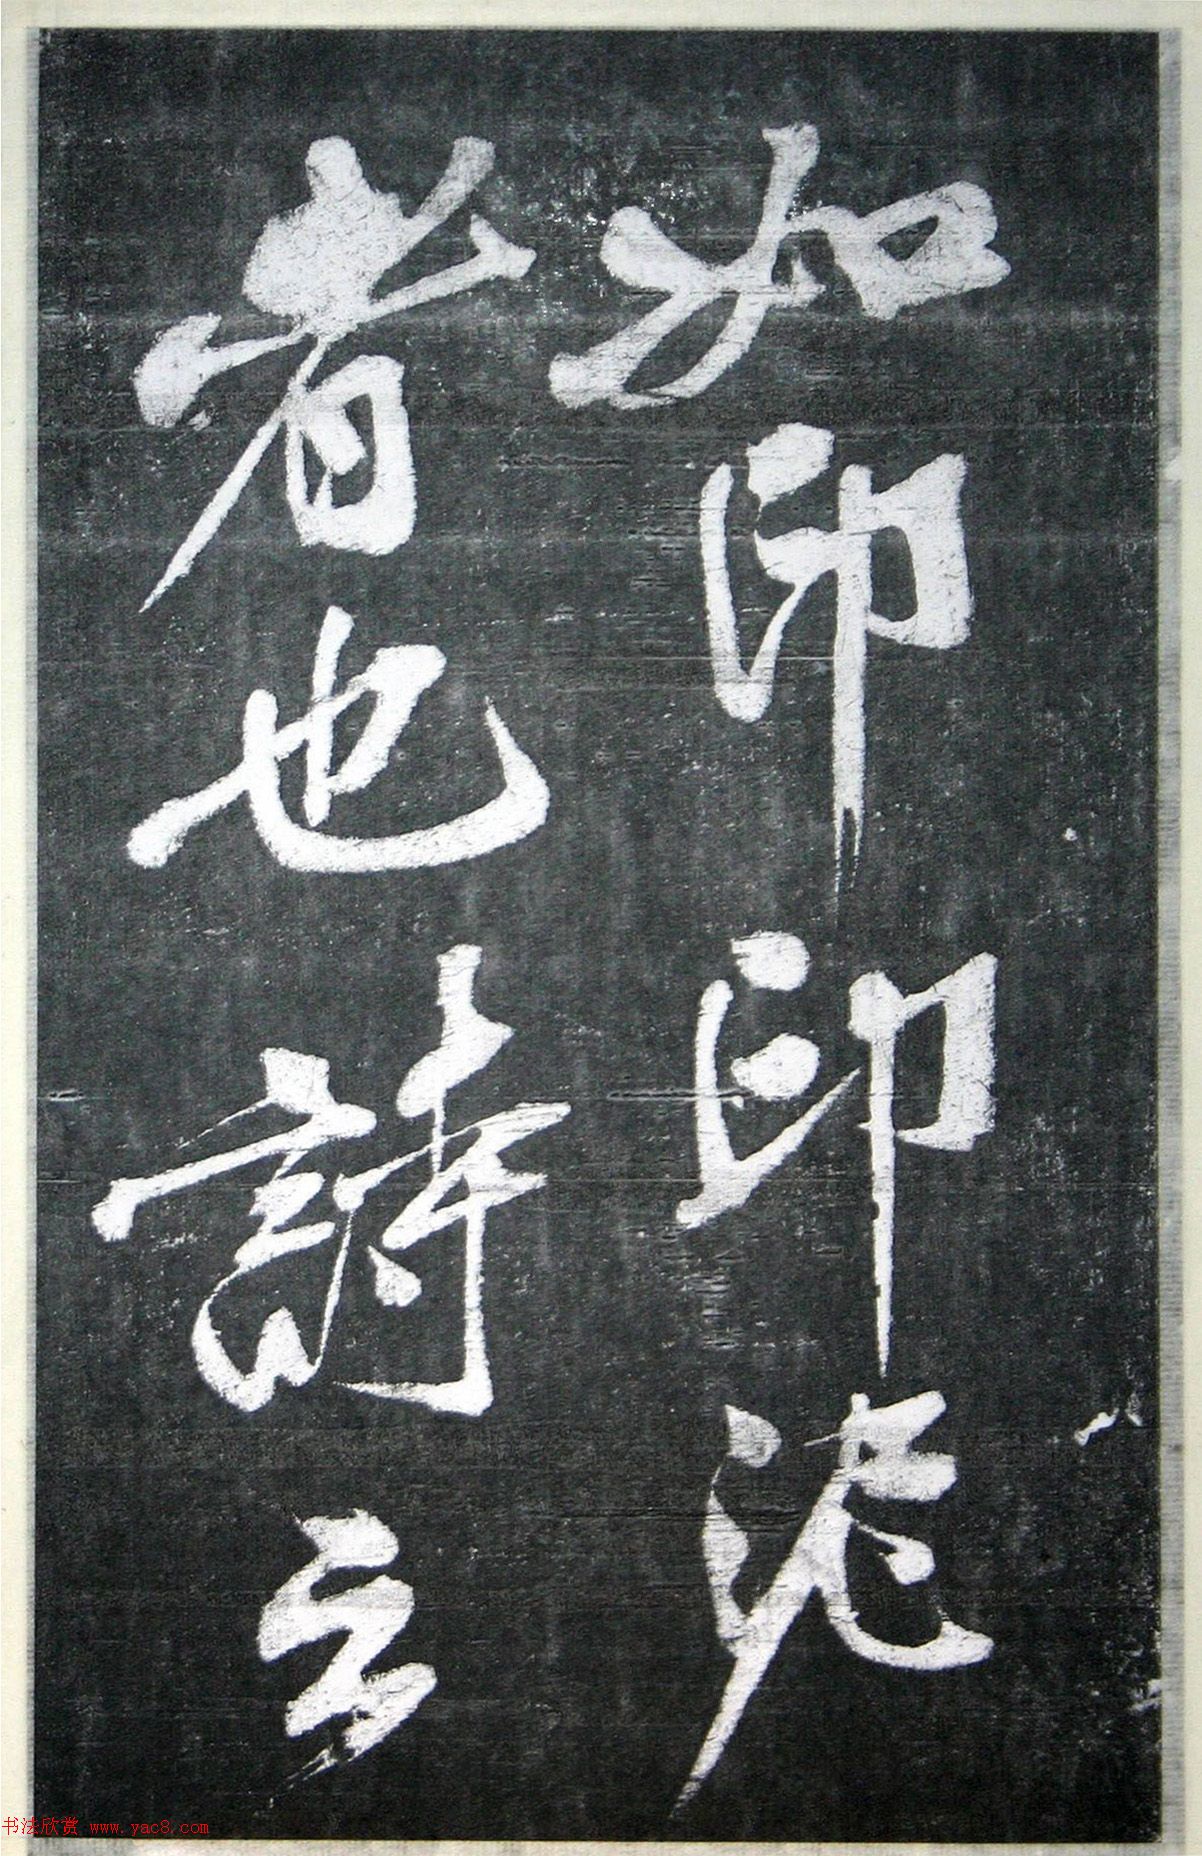 如印印泥
者也詩云
书法欣赏 www.yac8.com